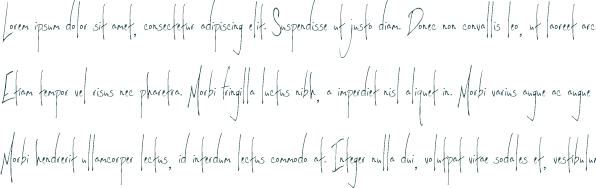 Lorem ipsum dolor sit amet, consectetur adipiscing elit. Suspendisse ut justo diam. Donec non convallis leo, ut laoreet arc
Etiam tempor vel risus nec pharetra. Morbi fringilla luctus nibh, a imperdiet nisl aliquet in. Morbi varius augue ac augue
Morbi hendrerit ullamcorper lectus, id interdum lectus commodo at. Integer nulla dui, volutpat vitae sodales et, vestibulum